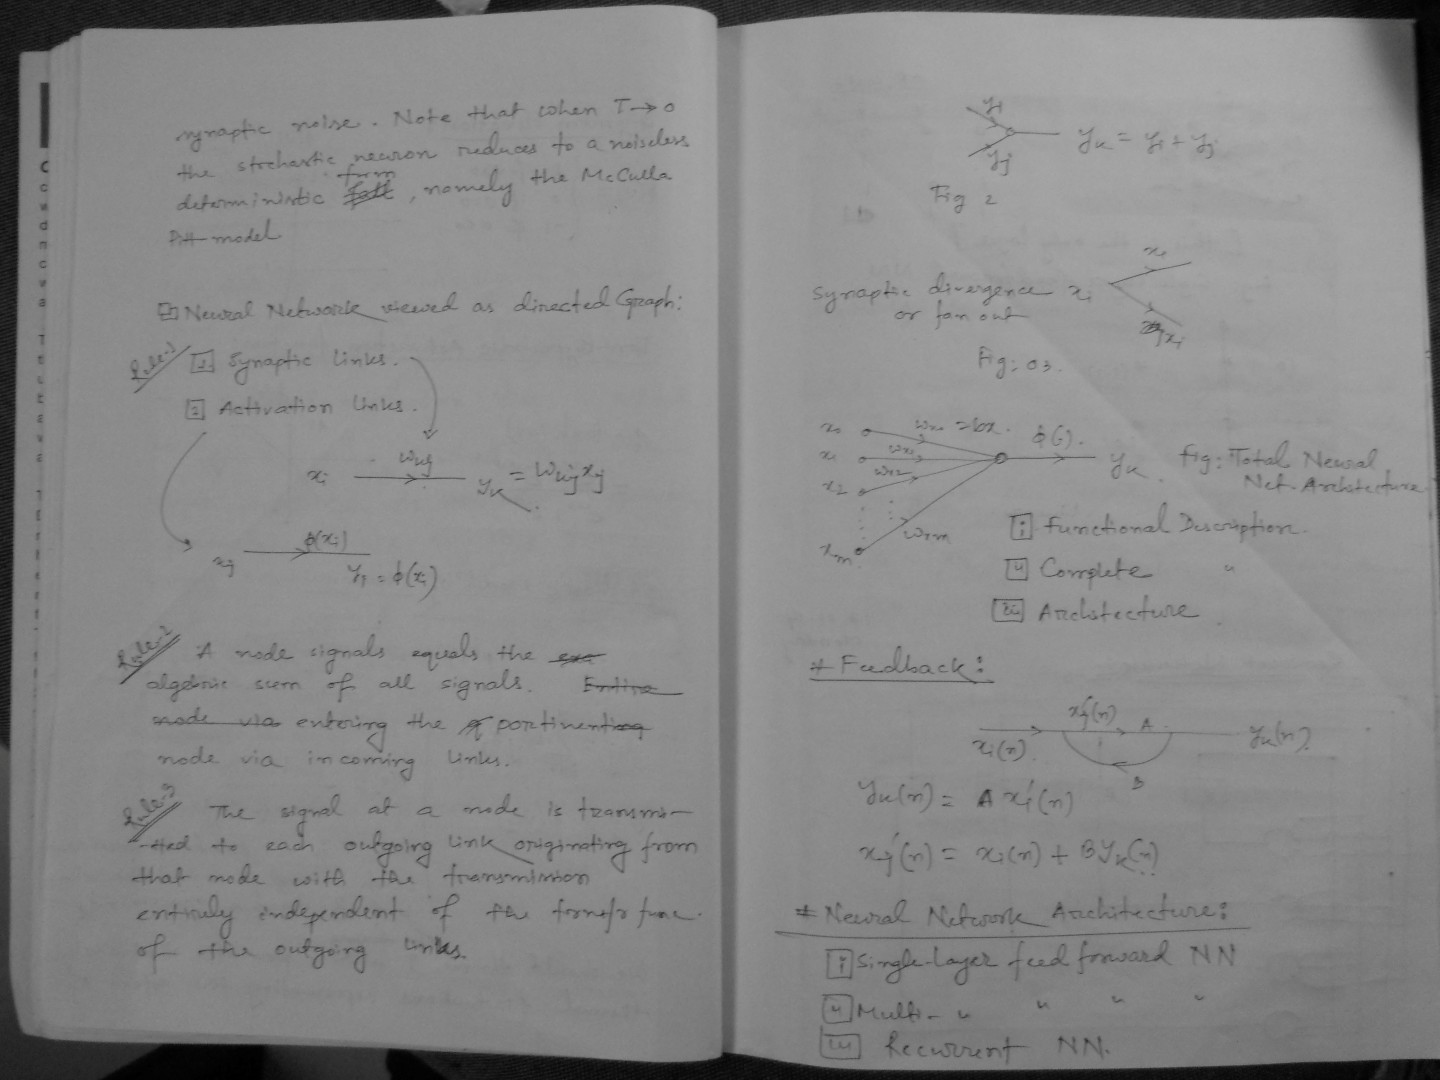 synaptic noise. Note that when T→0
the stochastic neuron reduces to a noiseless
deterministic form, namely the McCulla
Pitt model.
Neural Network viewed as directed Graph:
Rule-1 1. Synaptic links.
2 Activation links.
xi wkj yk = wkjxj
xj ϕ(xi)
yj = ϕ(xi)
Rule-2 A node signals equals the
algebric sum of all signals. Entire
node via entering the portinenting
node via incoming links.
Rule-3 The signal at a node is transmi-
-tted to each outgoing link originating from
that node with the transmission
entirely independent of the transfr func.
of the outgoing links.
yi
yj yk = yi + yj
Fig 2
synaptic divergence xi
or fan out
xi
xi
Fig: 03.
x0 = bx. ϕ(.).
x1 wx1 yk. fig: Total Neural
x2 wx2 Net. Archstecture
xm wxm
i Functional Discription.
ii Complete "
iii Archstecture
* Feedback:
xj'(n) A
xi(n) yk(n)
B
yk(n) = A xj'(n)
xj'(n) = xi(n) + B yk(n)
* Neural Network Architecture:
i Single-layer feed forward NN
ii Multi- " " " "
iii Recurrent NN.